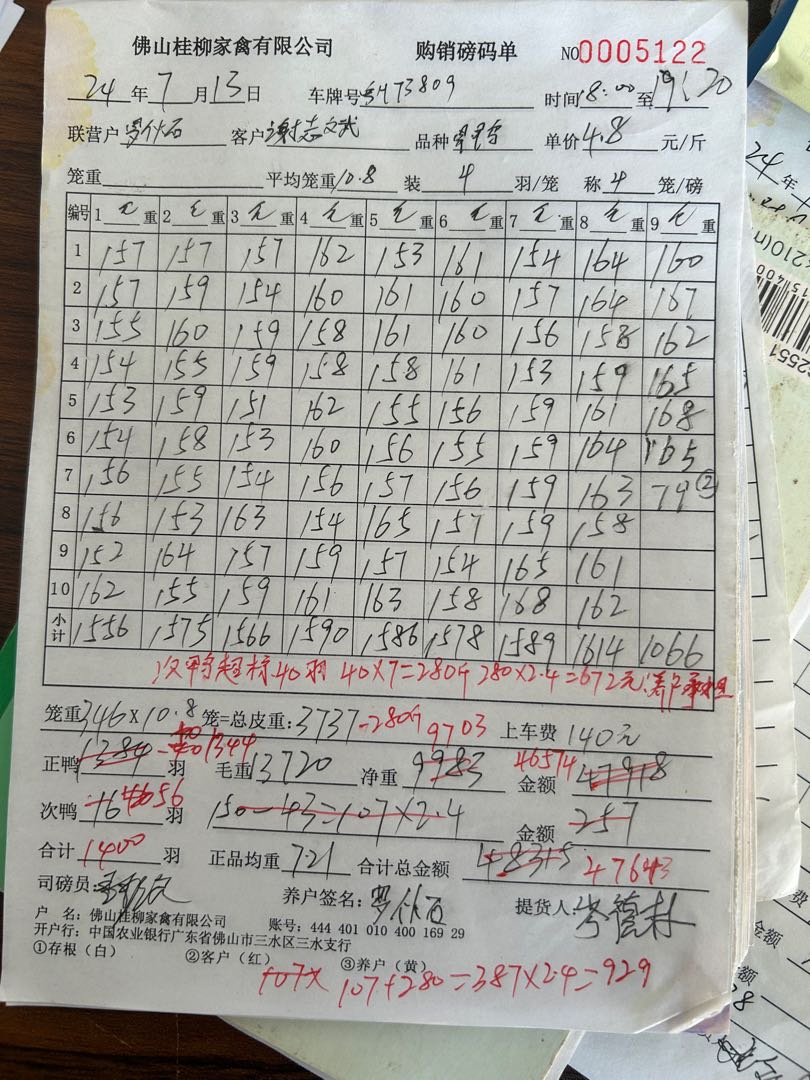 佛山桂柳家禽有限公司 购销磅码单 NO0005122
24年7月13日 车牌号 473809 时间18:00至19:20
联营户罗仕石 客户谢志文武 品种 单价4.8元/斤
笼重 平均笼重10.8 装4羽/笼 称4笼/磅
编号 1毛重 2毛重 3毛重 4毛重 5毛重 6毛重 7毛重 8毛重 9毛重
1 157 157 157 162 153 161 154 164 160
2 157 159 154 160 161 160 157 164 167
3 155 160 159 158 161 160 156 158 162
4 154 155 159 158 158 161 153 159 165
5 153 159 151 162 155 156 159 161 168
6 154 158 153 160 156 155 159 164 165
7 156 155 154 156 157 156 159 163 79②
8 156 153 163 154 165 157 159 158
9 152 164 157 159 157 154 165 161
10 162 155 159 161 163 158 168 162
小计 1556 1575 1566 1590 1586 1578 1589 1614 1066
次鸭超标40羽 40×7=280斤 280×2.4=672元.养户承担
笼重346×10.8笼=总皮重:3737-280斤 9703 上车费140元
正鸭1384-40 1344羽 毛重13720 净重9983 46574 金额47918
次鸭16 56羽 150-43=107×2.4 金额257
合计1400羽 正品均重7.21 合计总金额48315 47643
司磅员: 养户签名:罗仕石 提货人:
户 名:佛山桂柳家禽有限公司 账号:444 401 010 400 169 29
开户行:中国农业银行广东省佛山市三水区三水支行
①存根(白) ②客户(红) ③养户(黄)
107× 107+280=387×2.4=929